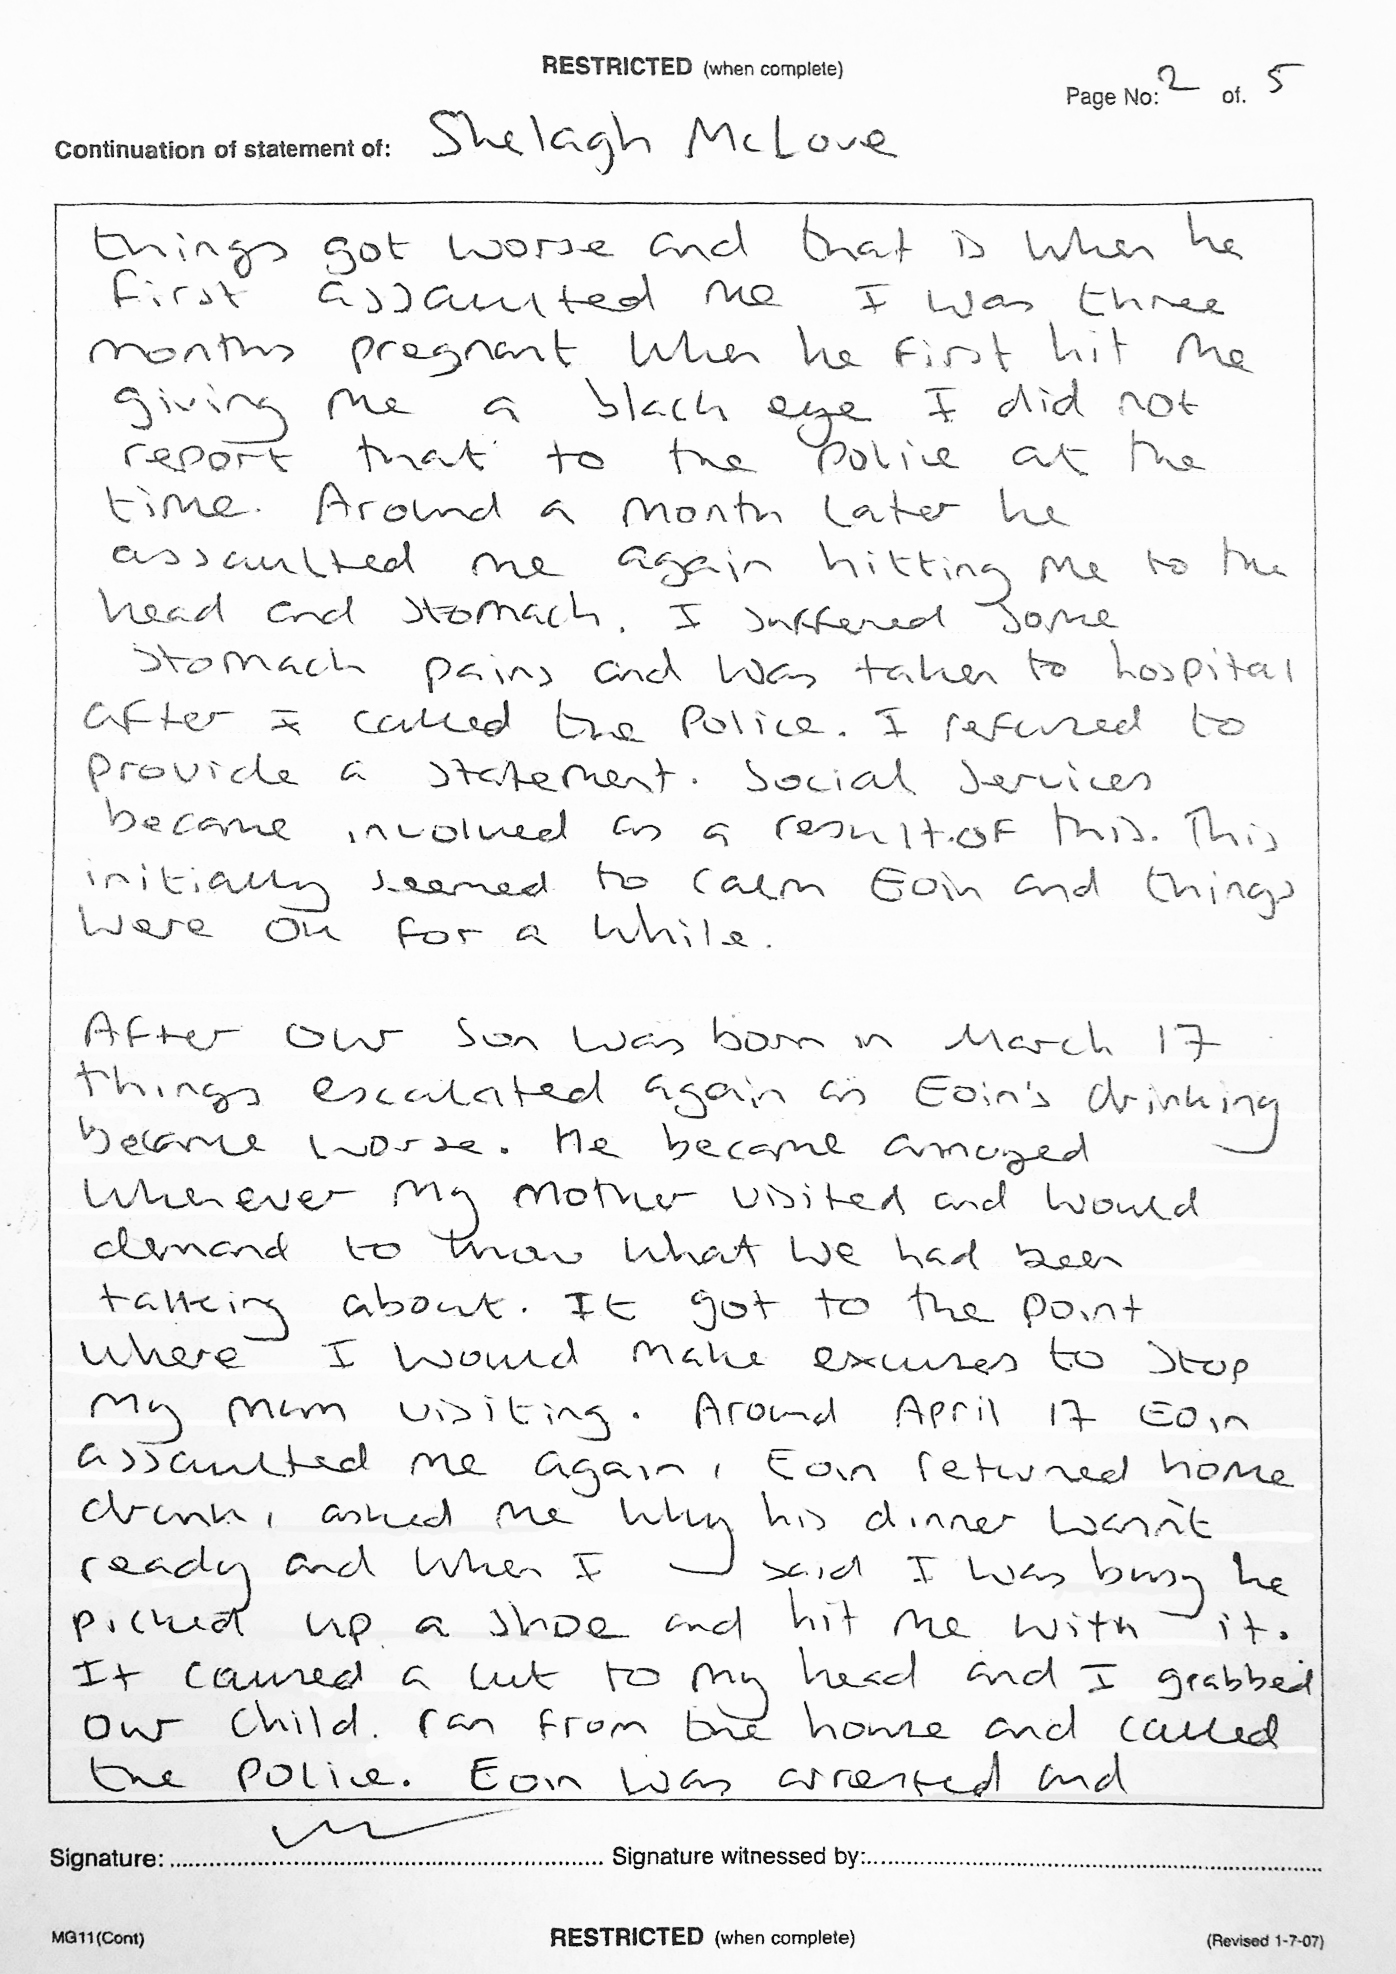 RESTRICTED (when complete)
Page No: 2 of. 5
Continuation of statement of: Shelagh McLove
things got worse and that is when he
first assaulted me I was three
months pregnant when he first hit me
giving me a black eye I did not
report that to the Police at the
time. Around a month later he
assaulted me again hitting me to the
head and stomach. I suffered some
stomach pains and was taken to hospital
after I called the Police. I refused to
provide a statement. Social Services
became involved as a result.of this. This
initially seemed to calm Eoin and things
were ok for a while.
After our son was born in March 17
things escalated again as Eoin's drinking
became worse. He became annoyed
whenever my mother visited and would
demand to know what we had been
talking about. It got to the point
where I would make excuses to stop
my mum visiting. Around April 17 Eoin
assaulted me again, Eoin returned home
drunk, asked me why his dinner wasn't
ready and when I said I was busy he
picked up a shoe and hit me with it.
It caused a cut to my head and I grabbed
our child. ran from the house and called
the Police. Eoin was arrested and
Signature: Signature witnessed by:
MG11(Cont) RESTRICTED (when complete) (Revised 1-7-07)